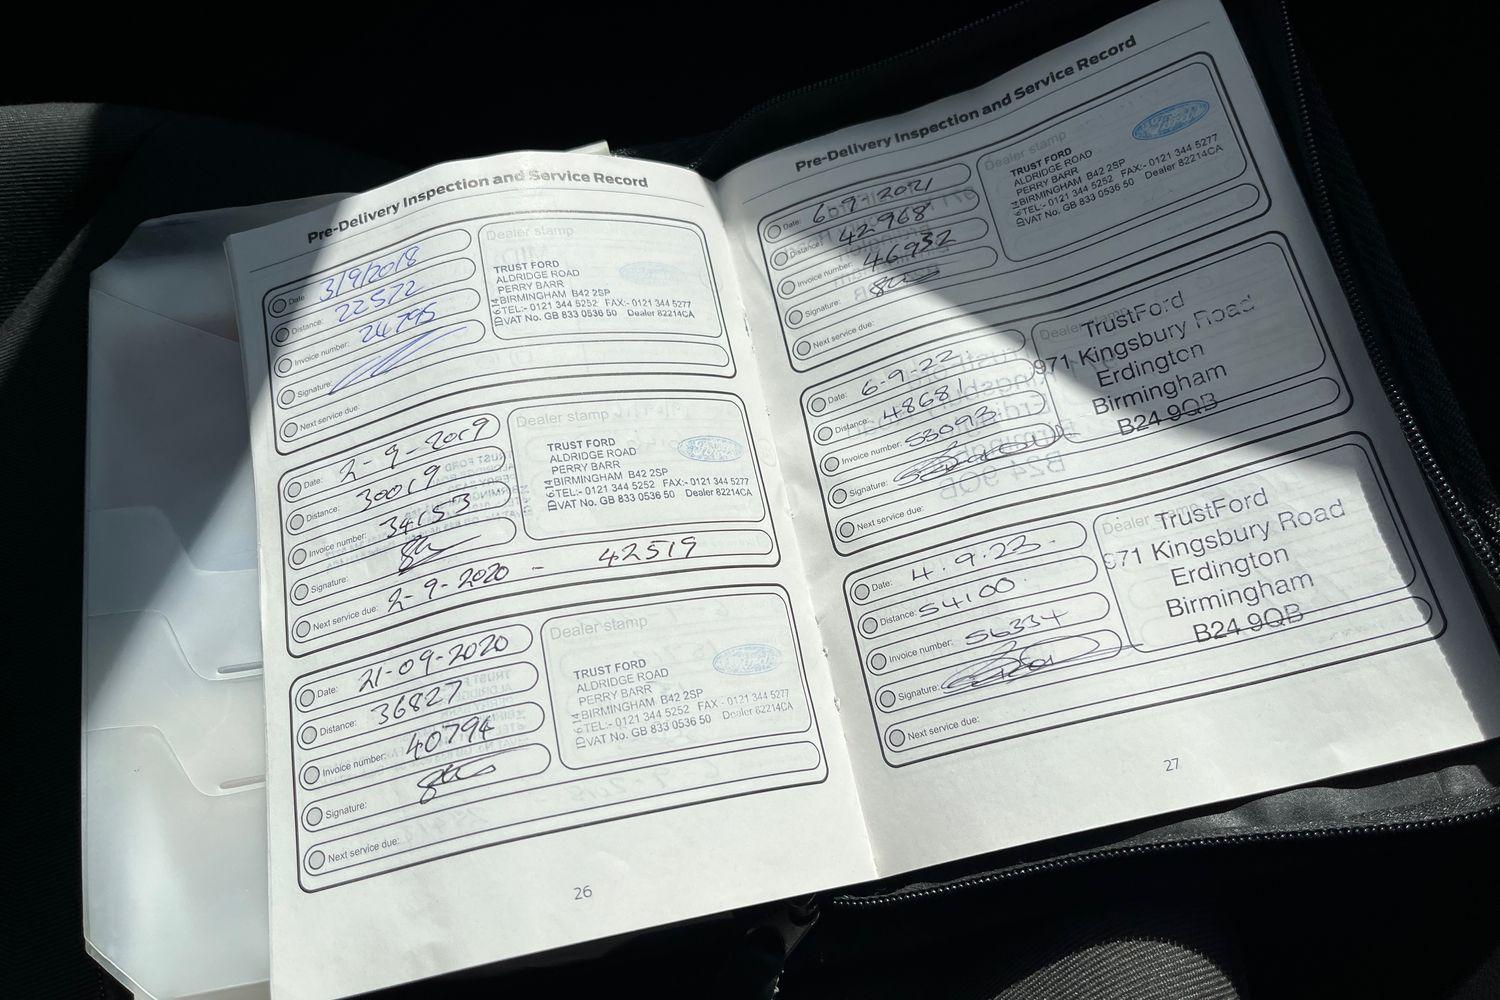 Pre-Delivery Inspection and Service Record
Date: 3/9/2018
Distance: 22572
Invoice number: 24795
Signature:
Next service due:
Dealer stamp
TRUST FORD
ALDRIDGE ROAD
PERRY BARR
BIRMINGHAM B42 2SP
TEL:- 0121 344 5252 FAX:- 0121 344 5277
VAT No. GB 833 0536 50 Dealer 82214CA
Date: 2-9-2019
Distance: 30019
Invoice number: 34153
Signature:
Next service due: 2-9-2020 - 42519
Dealer stamp
Ford
TRUST FORD
ALDRIDGE ROAD
PERRY BARR
BIRMINGHAM B42 2SP
TEL:- 0121 344 5252 FAX:- 0121 344 5277
VAT No. GB 833 0536 50 Dealer 82214CA
Date: 21-09-2020
Distance: 36827
Invoice number: 40794
Signature:
Next service due:
Dealer stamp
Ford
TRUST FORD
ALDRIDGE ROAD
PERRY BARR
BIRMINGHAM B42 2SP
TEL:- 0121 344 5252 FAX - 0121 344 5277
VAT No. GB 833 0536 50 Dealer 82214CA
26
Pre-Delivery Inspection and Service Record
Date: 6-9-2021
Distance: 42968
Invoice number: 46932
Signature:
Next service due:
Dealer stamp
Ford
TRUST FORD
ALDRIDGE ROAD
PERRY BARR
BIRMINGHAM B42 2SP
TEL:- 0121 344 5252 FAX:- 0121 344 5277
VAT No. GB 833 0536 50 Dealer 82214CA
Date: 6-9-22
Distance: 48681
Invoice number: 53093
Signature:
Next service due:
Dealer stamp
TrustFord
971 Kingsbury Road
Erdington
Birmingham
B24 9QB
Date: 4.9.23.
Distance: 54100
Invoice number: 56334
Signature:
Next service due:
Dealer stamp
TrustFord
971 Kingsbury Road
Erdington
Birmingham
B24 9QB
27